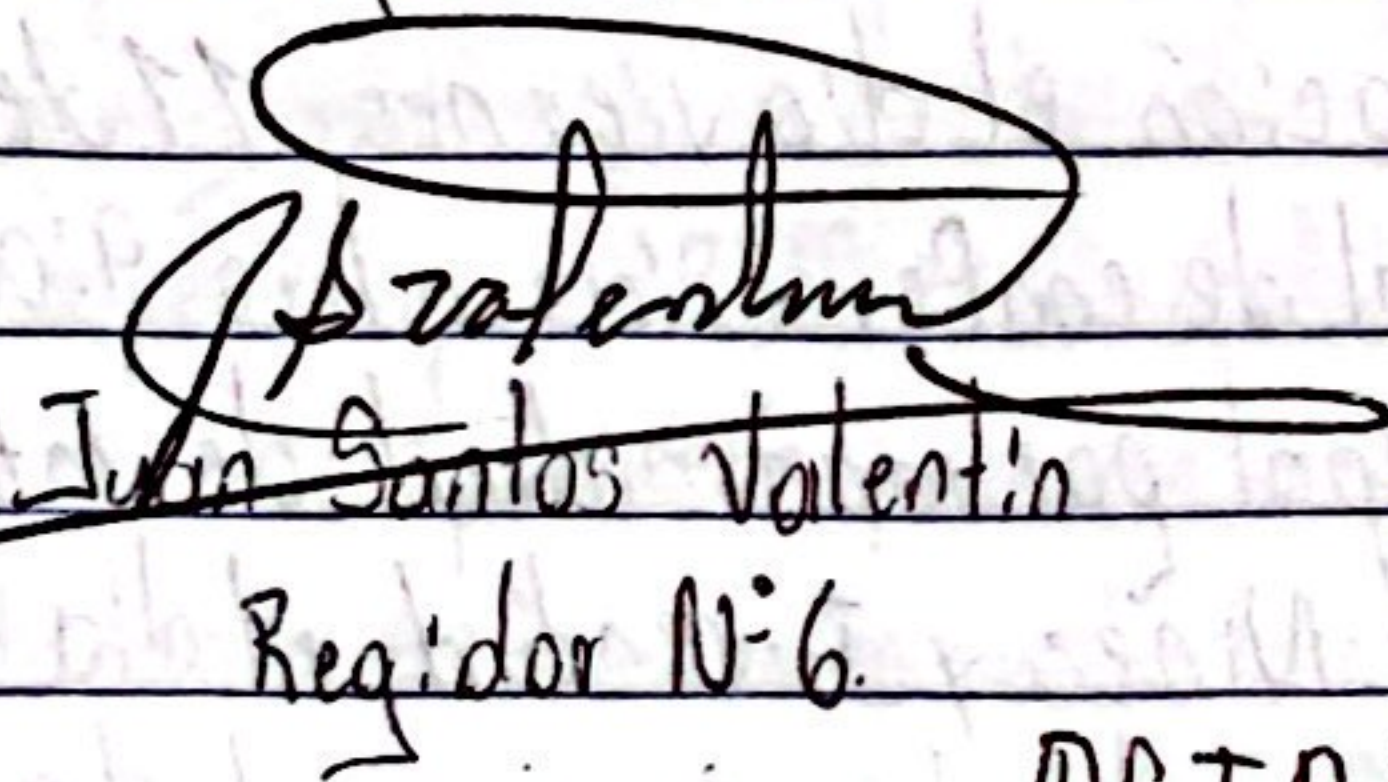 Juan Santos Valentin
Regidor Nº 6.